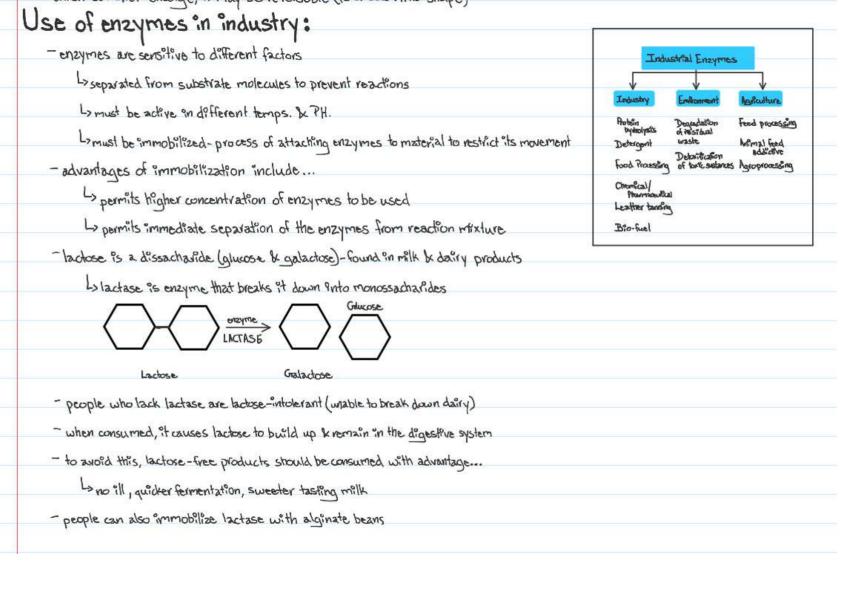 Use of enzymes in industry:
- enzymes are sensitive to different factors
↳ separated from substrate molecules to prevent reactions
↳ must be active in different temps. & PH.
↳ must be immobilized - process of attaching enzymes to material to restrict its movement
- advantages of immobilization include...
↳ permits higher concentration of enzymes to be used
↳ permits immediate separation of the enzymes from reaction mixture
- lactose is a dissacharide (glucose & galactose) - found in milk & dairy products
↳ lactase is enzyme that breaks it down into monossacharides
Glucose
enzyme
LACTASE
Lactose
Galactose
- people who lack lactase are lactose-intolerant (unable to break down dairy)
- when consumed, it causes lactose to build up & remain in the digestive system
- to avoid this, lactose-free products should be consumed with advantage...
↳ no ill, quicker fermentation, sweeter tasting milk
- people can also immobilize lactase with alginate beans
Industrial Enzymes
Industry
Protein
hydrolysis
Detergent
Food Processing
Chemical/
Pharmaceutical
Leather tanning
Bio-fuel
Environment
Degradation
of residual
waste
Detoxification
of toxic sustances
Agriculture
Food processing
Animal feed
addictive
Agroprocessing